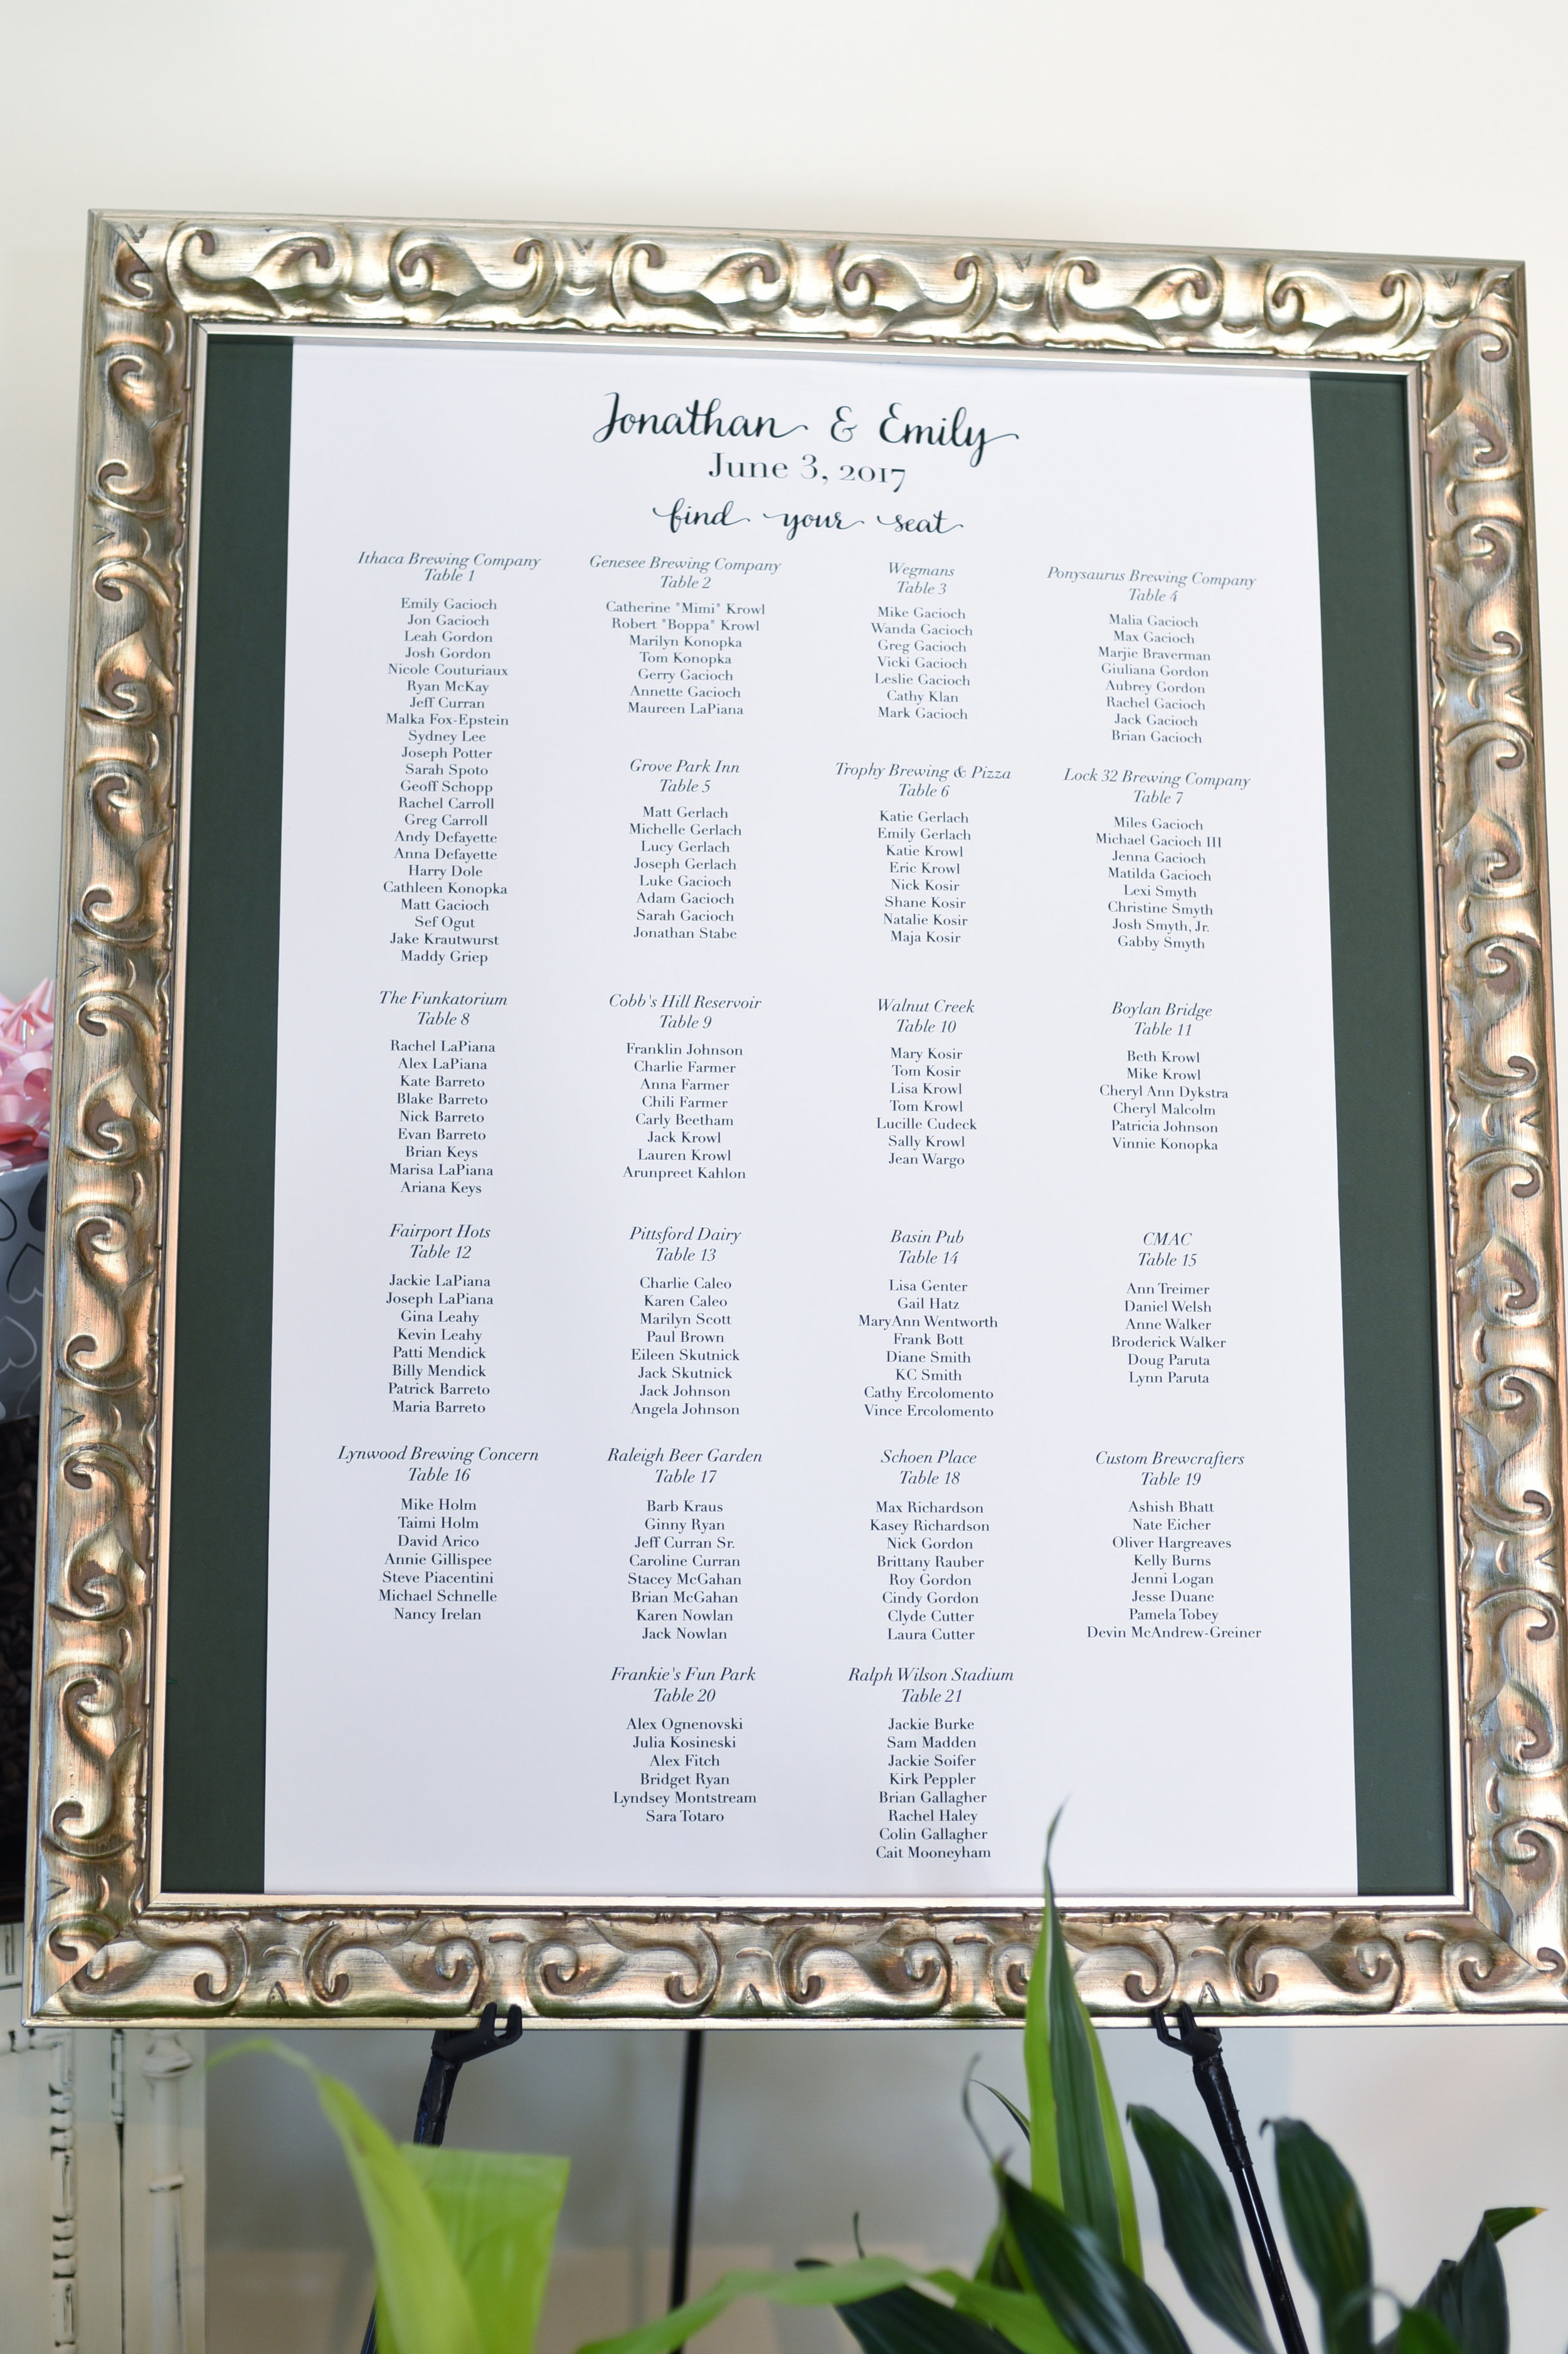 Jonathan & Emily
June 3, 2017
find your seat
Ithaca Brewing Company
Table 1
Emily Gacioch
Jon Gacioch
Leah Gordon
Josh Gordon
Nicole Couturiaux
Ryan McKay
Jeff Curran
Malka Fox-Epstein
Sydney Lee
Joseph Potter
Sarah Spoto
Geoff Schopp
Rachel Carroll
Greg Carroll
Andy Defayette
Anna Defayette
Harry Dole
Cathleen Konopka
Matt Gacioch
Sef Ogut
Jake Krautwurst
Maddy Griep
Genesee Brewing Company
Table 2
Catherine "Mimi" Krowl
Robert "Boppa" Krowl
Marilyn Konopka
Tom Konopka
Gerry Gacioch
Annette Gacioch
Maureen LaPiana
Wegmans
Table 3
Mike Gacioch
Wanda Gacioch
Greg Gacioch
Vicki Gacioch
Leslie Gacioch
Cathy Klan
Mark Gacioch
Ponysaurus Brewing Company
Table 4
Malia Gacioch
Max Gacioch
Marjie Braverman
Giuliana Gordon
Aubrey Gordon
Rachel Gacioch
Jack Gacioch
Brian Gacioch
Grove Park Inn
Table 5
Matt Gerlach
Michelle Gerlach
Lucy Gerlach
Joseph Gerlach
Luke Gacioch
Adam Gacioch
Sarah Gacioch
Jonathan Stabe
Trophy Brewing & Pizza
Table 6
Katie Gerlach
Emily Gerlach
Katie Krowl
Eric Krowl
Nick Kosir
Shane Kosir
Natalie Kosir
Maja Kosir
Lock 32 Brewing Company
Table 7
Miles Gacioch
Michael Gacioch III
Jenna Gacioch
Matilda Gacioch
Lexi Smyth
Christine Smyth
Josh Smyth, Jr.
Gabby Smyth
The Funkatorium
Table 8
Rachel LaPiana
Alex LaPiana
Kate Barreto
Blake Barreto
Nick Barreto
Evan Barreto
Brian Keys
Marisa LaPiana
Ariana Keys
Cobb's Hill Reservoir
Table 9
Franklin Johnson
Charlie Farmer
Anna Farmer
Chili Farmer
Carly Beetham
Jack Krowl
Lauren Krowl
Arunpreet Kahlon
Walnut Creek
Table 10
Mary Kosir
Tom Kosir
Lisa Krowl
Tom Krowl
Lucille Cudeck
Sally Krowl
Jean Wargo
Boylan Bridge
Table 11
Beth Krowl
Mike Krowl
Cheryl Ann Dykstra
Cheryl Malcolm
Patricia Johnson
Vinnie Konopka
Fairport Hots
Table 12
Jackie LaPiana
Joseph LaPiana
Gina Leahy
Kevin Leahy
Patti Mendick
Billy Mendick
Patrick Barreto
Maria Barreto
Pittsford Dairy
Table 13
Charlie Caleo
Karen Caleo
Marilyn Scott
Paul Brown
Eileen Skutnick
Jack Skutnick
Jack Johnson
Angela Johnson
Basin Pub
Table 14
Lisa Genter
Gail Hatz
MaryAnn Wentworth
Frank Bott
Diane Smith
KC Smith
Cathy Ercolomento
Vince Ercolomento
CMAC
Table 15
Ann Treimer
Daniel Welsh
Anne Walker
Broderick Walker
Doug Paruta
Lynn Paruta
Lynwood Brewing Concern
Table 16
Mike Holm
Taimi Holm
David Arico
Annie Gillispee
Steve Piacentini
Michael Schnelle
Nancy Irelan
Raleigh Beer Garden
Table 17
Barb Kraus
Ginny Ryan
Jeff Curran Sr.
Caroline Curran
Stacey McGahan
Brian McGahan
Karen Nowlan
Jack Nowlan
Schoen Place
Table 18
Max Richardson
Kasey Richardson
Nick Gordon
Brittany Rauber
Roy Gordon
Cindy Gordon
Clyde Cutter
Laura Cutter
Custom Brewcrafters
Table 19
Ashish Bhatt
Nate Eicher
Oliver Hargreaves
Kelly Burns
Jenni Logan
Jesse Duane
Pamela Tobey
Devin McAndrew-Greiner
Frankie's Fun Park
Table 20
Alex Ognenovski
Julia Kosineski
Alex Fitch
Bridget Ryan
Lyndsey Montstream
Sara Totaro
Ralph Wilson Stadium
Table 21
Jackie Burke
Sam Madden
Jackie Soifer
Kirk Peppler
Brian Gallagher
Rachel Haley
Colin Gallagher
Cait Mooneyham